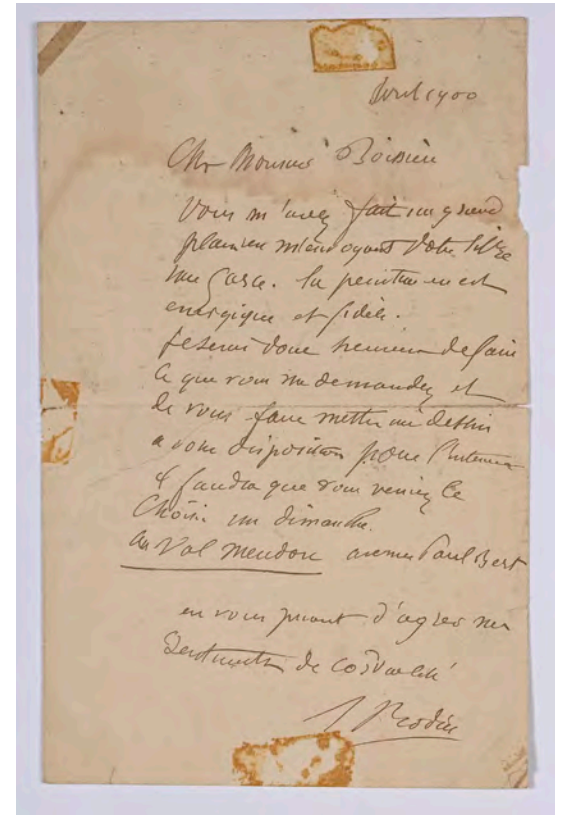 Avril 1900
Cher Monsieur
Vous m'avez fait un grand
plaisir en m'envoyant votre livre
une Garce. la peinture en est
energique et fidèle.
je serais donc heureux de faire
ce que vous me demandez et
de vous faire mettre un dessin
a votre disposition pour
il faudra que vous veniez le
choisir un dimanche.
au Val Meudon avenue Paul Bert
en vous priant d'agreer mes
sentiments de cordialité
A Rodin